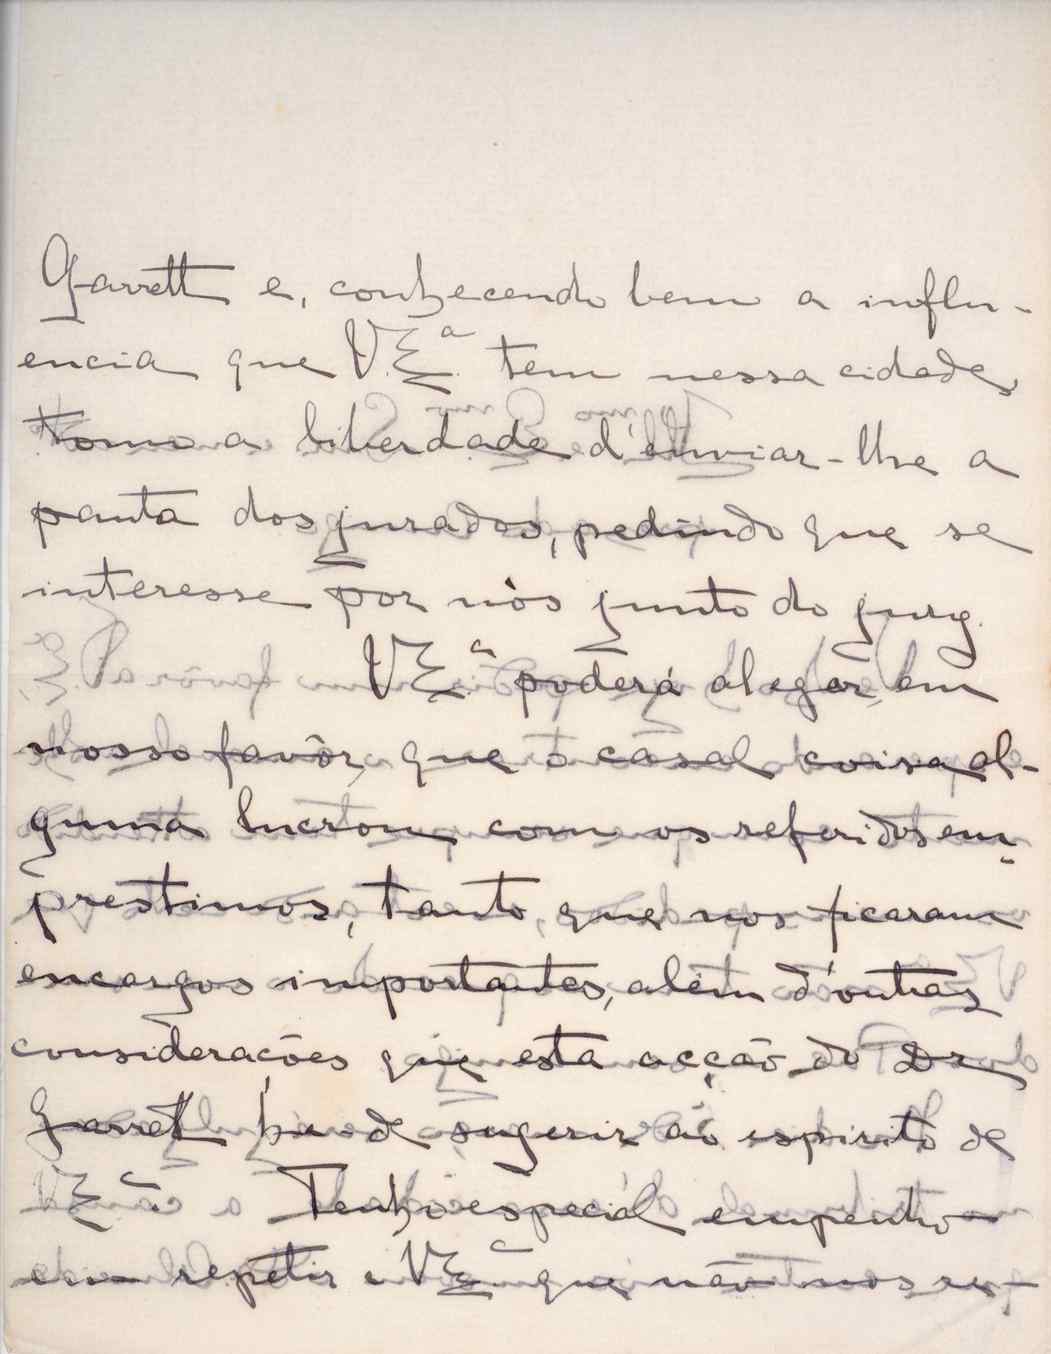 Garrett e, conhecendo bem a influ-
encia que V. Ex.ª tem nessa cidade,
tomo a liberdade d'enviar-lhe a
pauta dos jurados, pedindo que se
interesse por nós junto do jury.
V. Ex.ª poderá alegar, em
nosso favôr, que o casal coisa al-
guma lucrou com os referidos em-
prestimos, tanto, que nos ficaram
encargos importantes, além d'outras
considerações que esta acção do Dr
Garrett ha-de sugerir ao espirito de
V. Ex.ª. Tenho especial empenho
em repetir a V. Ex.ª que não nos re-